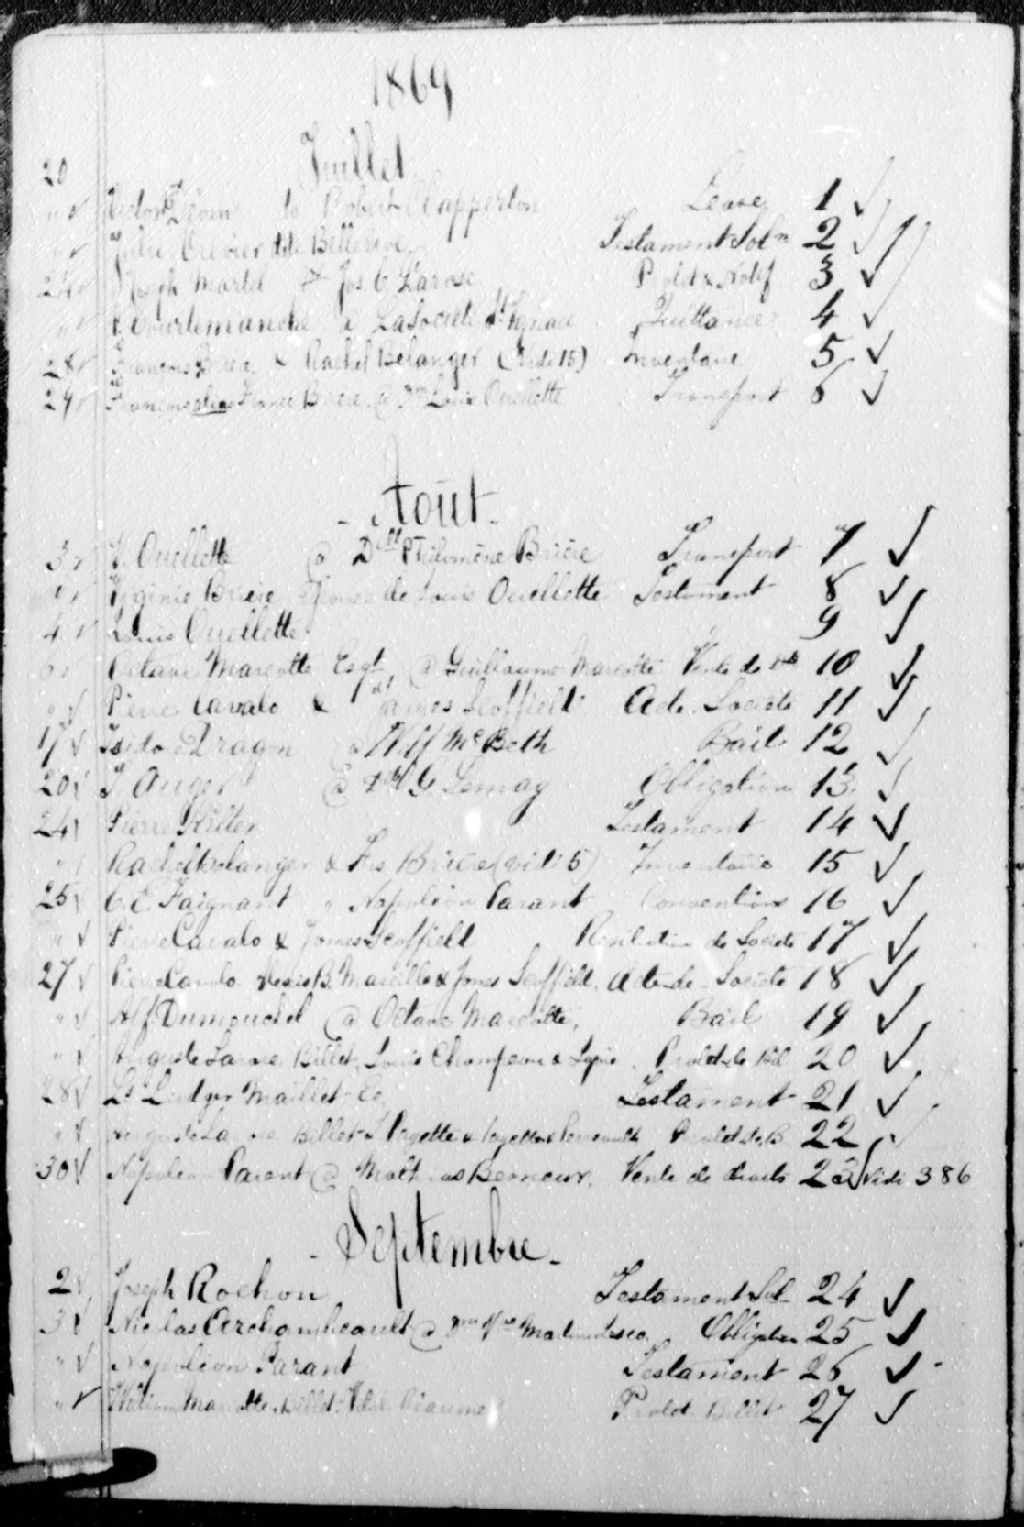 1869
Juillet
20
" Victor to Robert Clapperton Lease 1
" Julie Crevier dite Bellerive Testament Soln 2
24 Joseph Martel & Jos C Larose Protet & Notif 3
" Courtemanche @ La Société St Ignace Quittance 4
28 François Brière & Rachel Bélanger (Vide 15) Inventaire 5
29 François alias France Brière @ Dme Louis Ouellette Transport 6
Août
3 L Ouellette @ Dlle Philomène Brière Transport 7
" Virginie Brière Epouse de Louis Ouellette Testament 8
4 Louis Ouellette 9
6 Octave Marcotte Esqr @ Guillaume Marcotte Vente de 10
" Pierre Cavalo & James Scoffield Acte Société 11
17 Dragon Wilf McBeth Bail 12
20 J Auger @ G Lemay Obligation 13
24 Pierre Testament 14
" Rachel Belanger & Frs Brière (vide 5) Inventaire 15
25 C. E. Faignant Napoléon Parant Conventions 16
" Pierre Cavalo & James Scoffield Résiliation de Société 17
27 Pierre Cavalo B. Marcotte & James Scoffield Acte de Société 18
" Alf Dumouchel @ Octave Marcotte. Bail 19
" Auguste Larose Billet, Louis Protet de Bil 20
28 Ls Ludger Maillet Testament 21
" Auguste Larose Billet Payette & Payette & Perreault Protet de B. 22
30 Napoleon Parant @ Vente de droits 23 Vide 386
- Septembre -
2 Joseph Rochon Testament Sol 24
3 Nicolas Archambeault @ Obligation 25
" Napoléon Parant Testament 26
" William Marcotte. Billet Protet Billet 27